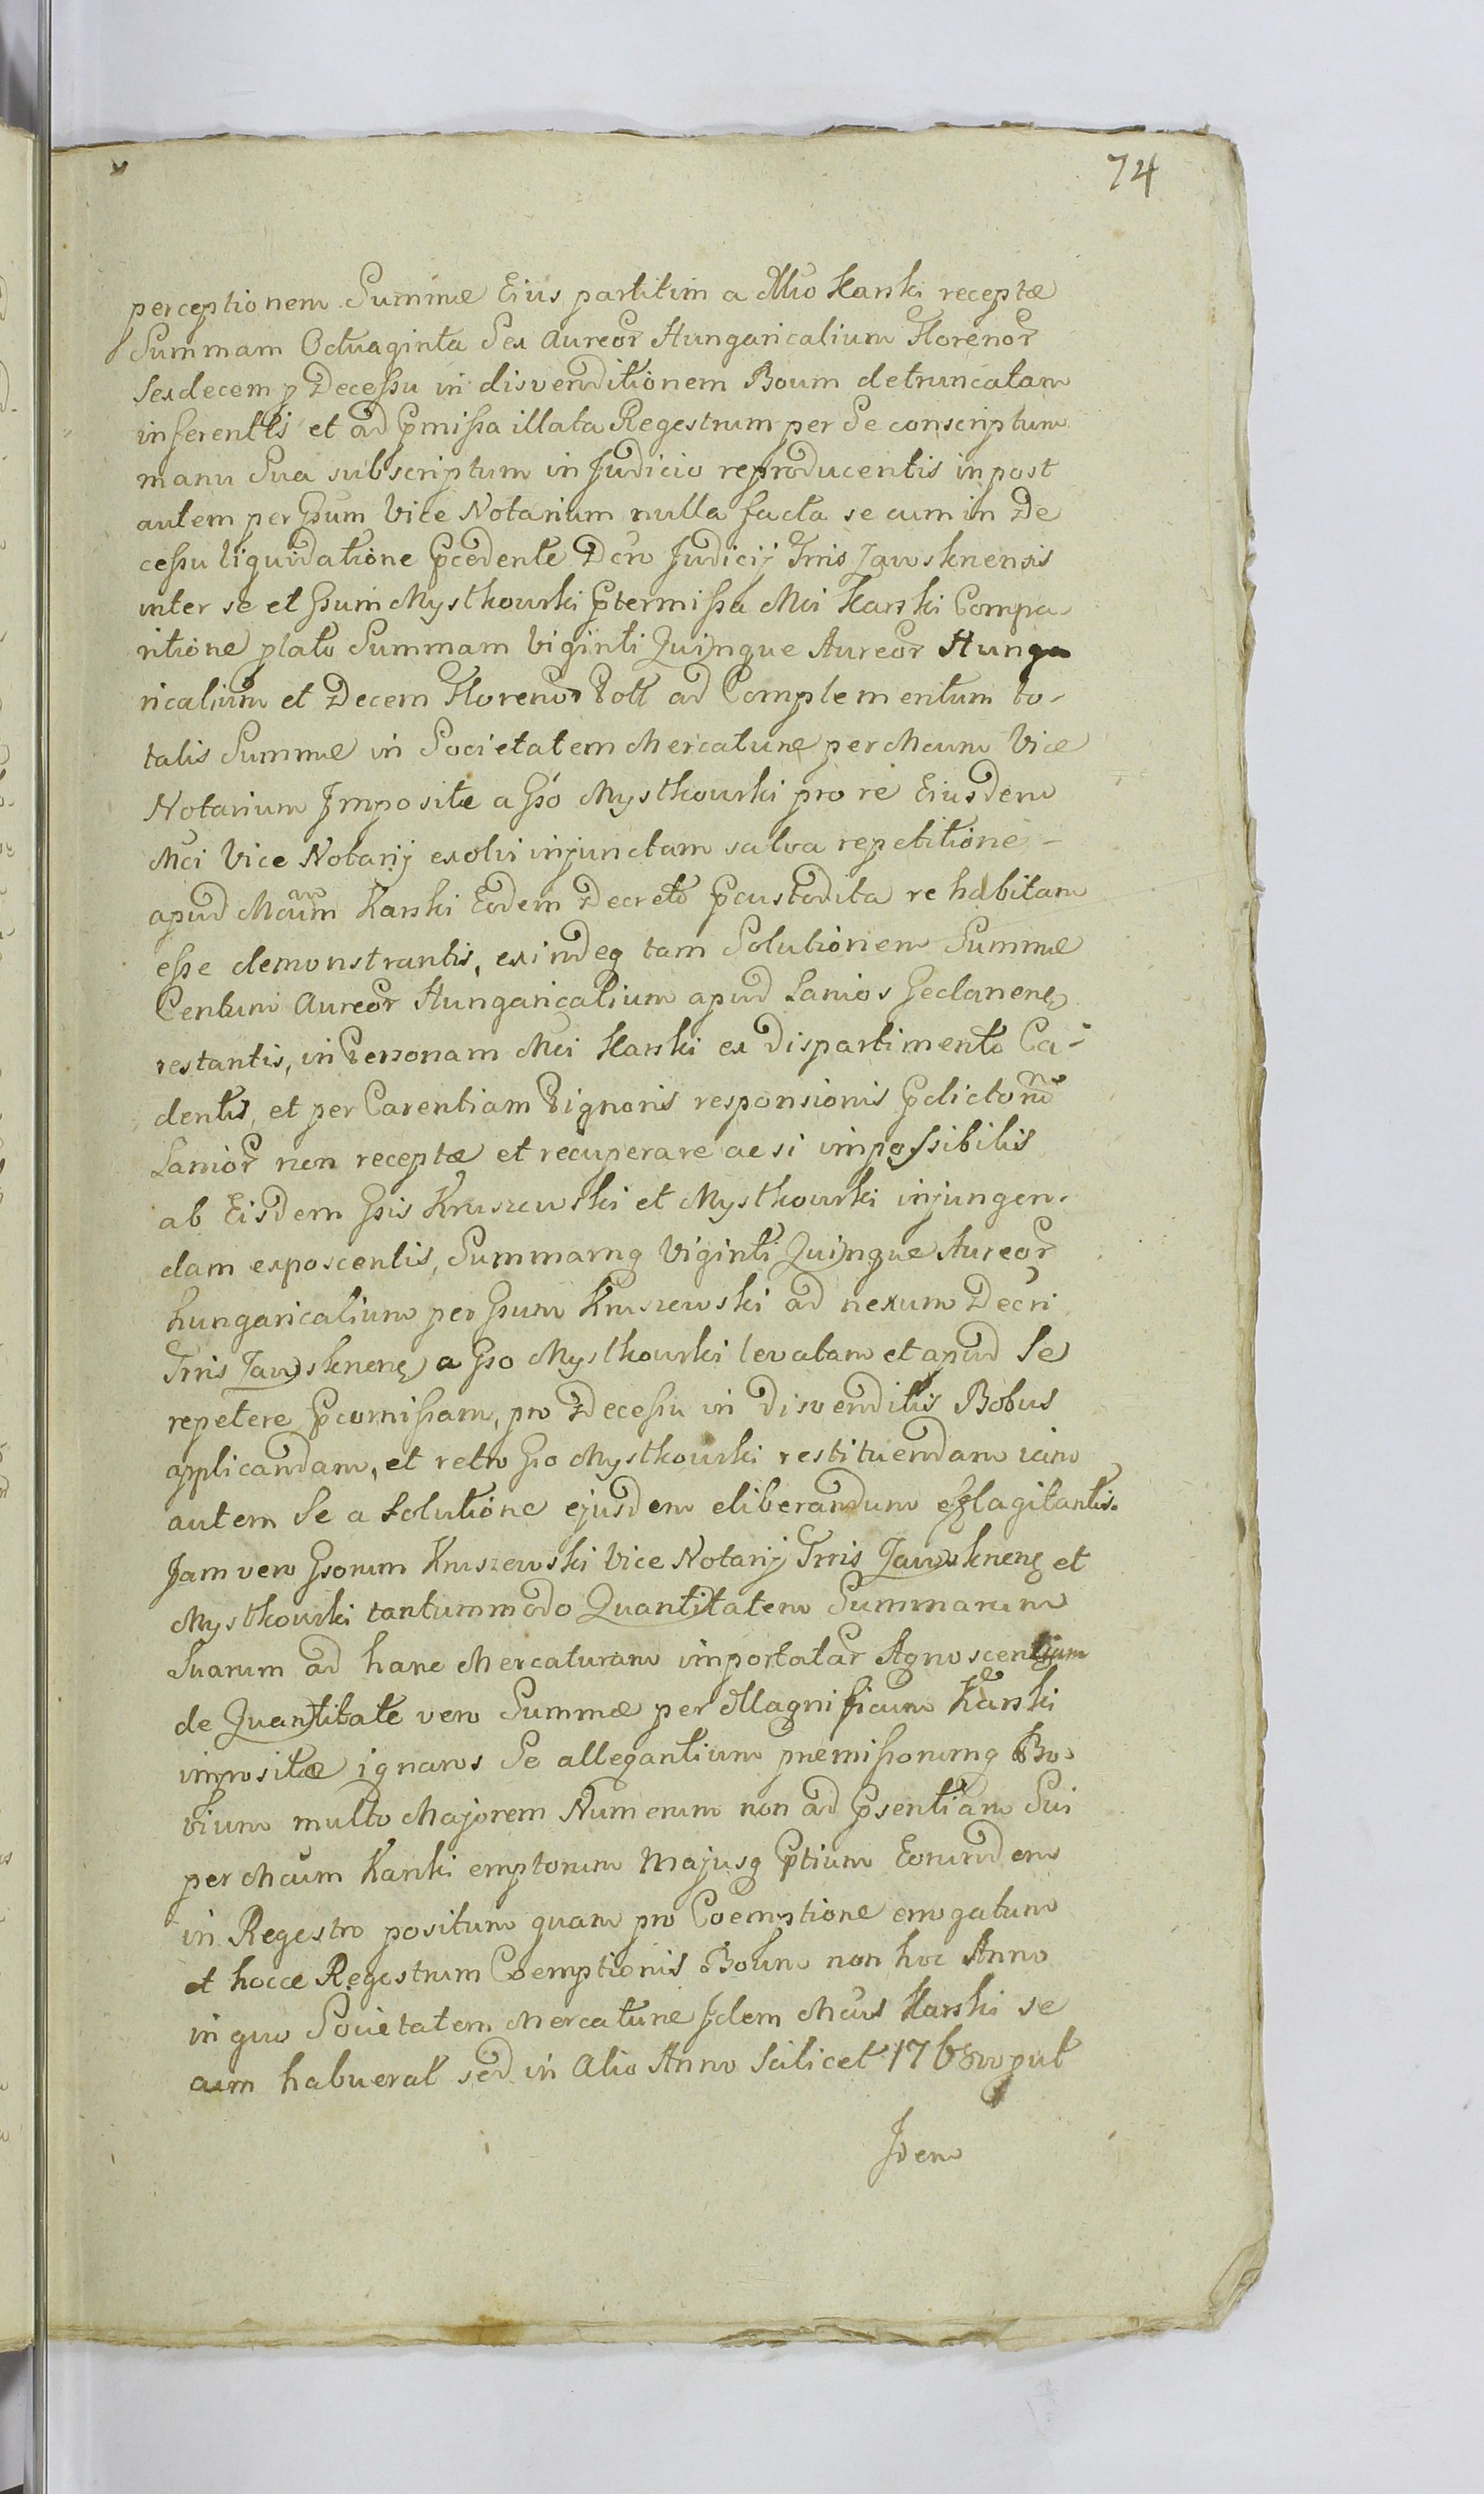 74
perceptionem Summæ Eius partitim a Mco Karski receptæ
Summam Octuaginta Sex aureor Hungaricalium Florenor
Sexdecem p Decessu in disvenditionem Boum detruncatam
inferentis et ad pmissa illata Regestrum per Se conscriptum
manu Sua subscriptum in Judicio reproducentis in post
autem per Gsum Vice Notarium nulla facta se cum in De
cessu liquidatione pcedente Dcro Judicij Trris Zawskrensis
inter se et Gsum Mystkowski ptermissa Mci Karski Compa
ritione plato Summam Viginti Quinque Aureor Hunga
ricalium et Decem Florenor Poll ad Complementum to-
talis Summæ in Societatem Mercaturæ per Mcum Vice
Notarium Impositæ a Gso Mystkowski pro re Eiusdem
Mci Vice Notarij exolvi injunctam salva repetitione -
apud Mcum Karski Eodem Decreto pcustodita re habitam
esse demonstrantis, exindeq tam Solutionem Summæ
Centum Aureor Hungaricalium apud Lanios
restantis, in Personam Mci Karski ex dispartimento Ca-
dentis, et per Carentiam Pignoris responsionis pdictorum
Lanior non receptæ et recuperare ac si impossibilis
ab Eisdem Gsis Kruszewski et Mystkowski injungen-
dam exposcentis, Summamq Viginti Quinque Aureor
hungaricalium per Gsum Kruszewski ad nexum Decri
Trris Zawskrenę a Gso Mystkowski levatam et apud Se
repetere pcomissam, pro Decessu in disvenditis Bobus
applicandam, et retro Gso Mystkowski restituendam
autem Se a Solutione ejusdem eliberandum efflagitantis.
Jam vero Gsorum Kruszewski Vice Notarij Trris Zawskrenę et
Mystkowski tantummodo Quantitatem Summarum
Suarum ad hanc Mercaturam importatar Agnoscentium
de Quantitate vero Summæ per Magnificum Karski
impositæ ignaros Se allegantium præmissorumq Bo-
vium multo Majorem Numerum non ad psentiam Sui
per Mcum Karski emptorum Majusq ptium Eorumdem
in Regestro positum quam pro Coemptione erogatum
et hocce Regestrum Coemptionis Boum non hoc Anno
in quo Societatem Mercaturæ Idem Mcus Karski se
cum habuerat sed in Alio Anno Scilicet 1768vo put
Idem